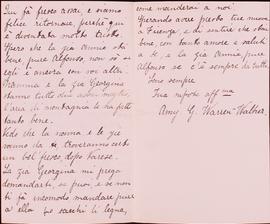 Qui fà fresco assai e siamo
felice ritornare, perchè qui
è diventata molto triste.
Spero che la zia Annie stia
bene, pure Alfonso, non so se
egli è ancora con voi altri.
Mamma e la zia Georgina
stanno tutte due meglio,
l'aria di montagna le ha fatto
tanto bene.
Vedo che la nonna e le zie
vanno da troveranno certo
un bel fresco, dopo Varese.
La zia Georgina mi prega
domandarti, se puoi, e se non
ti fà incomodo mandare pure
a ella scarichi di legna,
come manderai a noi.
Sperando avere presto tue nuove
a Firenze, e di sentire che stai
bene, con tanto amore e saluti
a te, e la zia Annie, pure
Alfonso se è là sempre di tutti
Sono sempre
Tua nipote aff.ma
Amy G. Warren Walker.